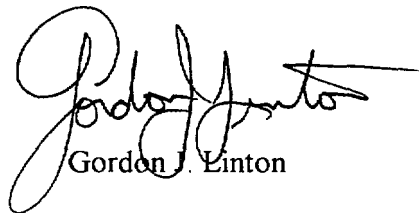 Gordon J. Linton
Gordon J. Linton